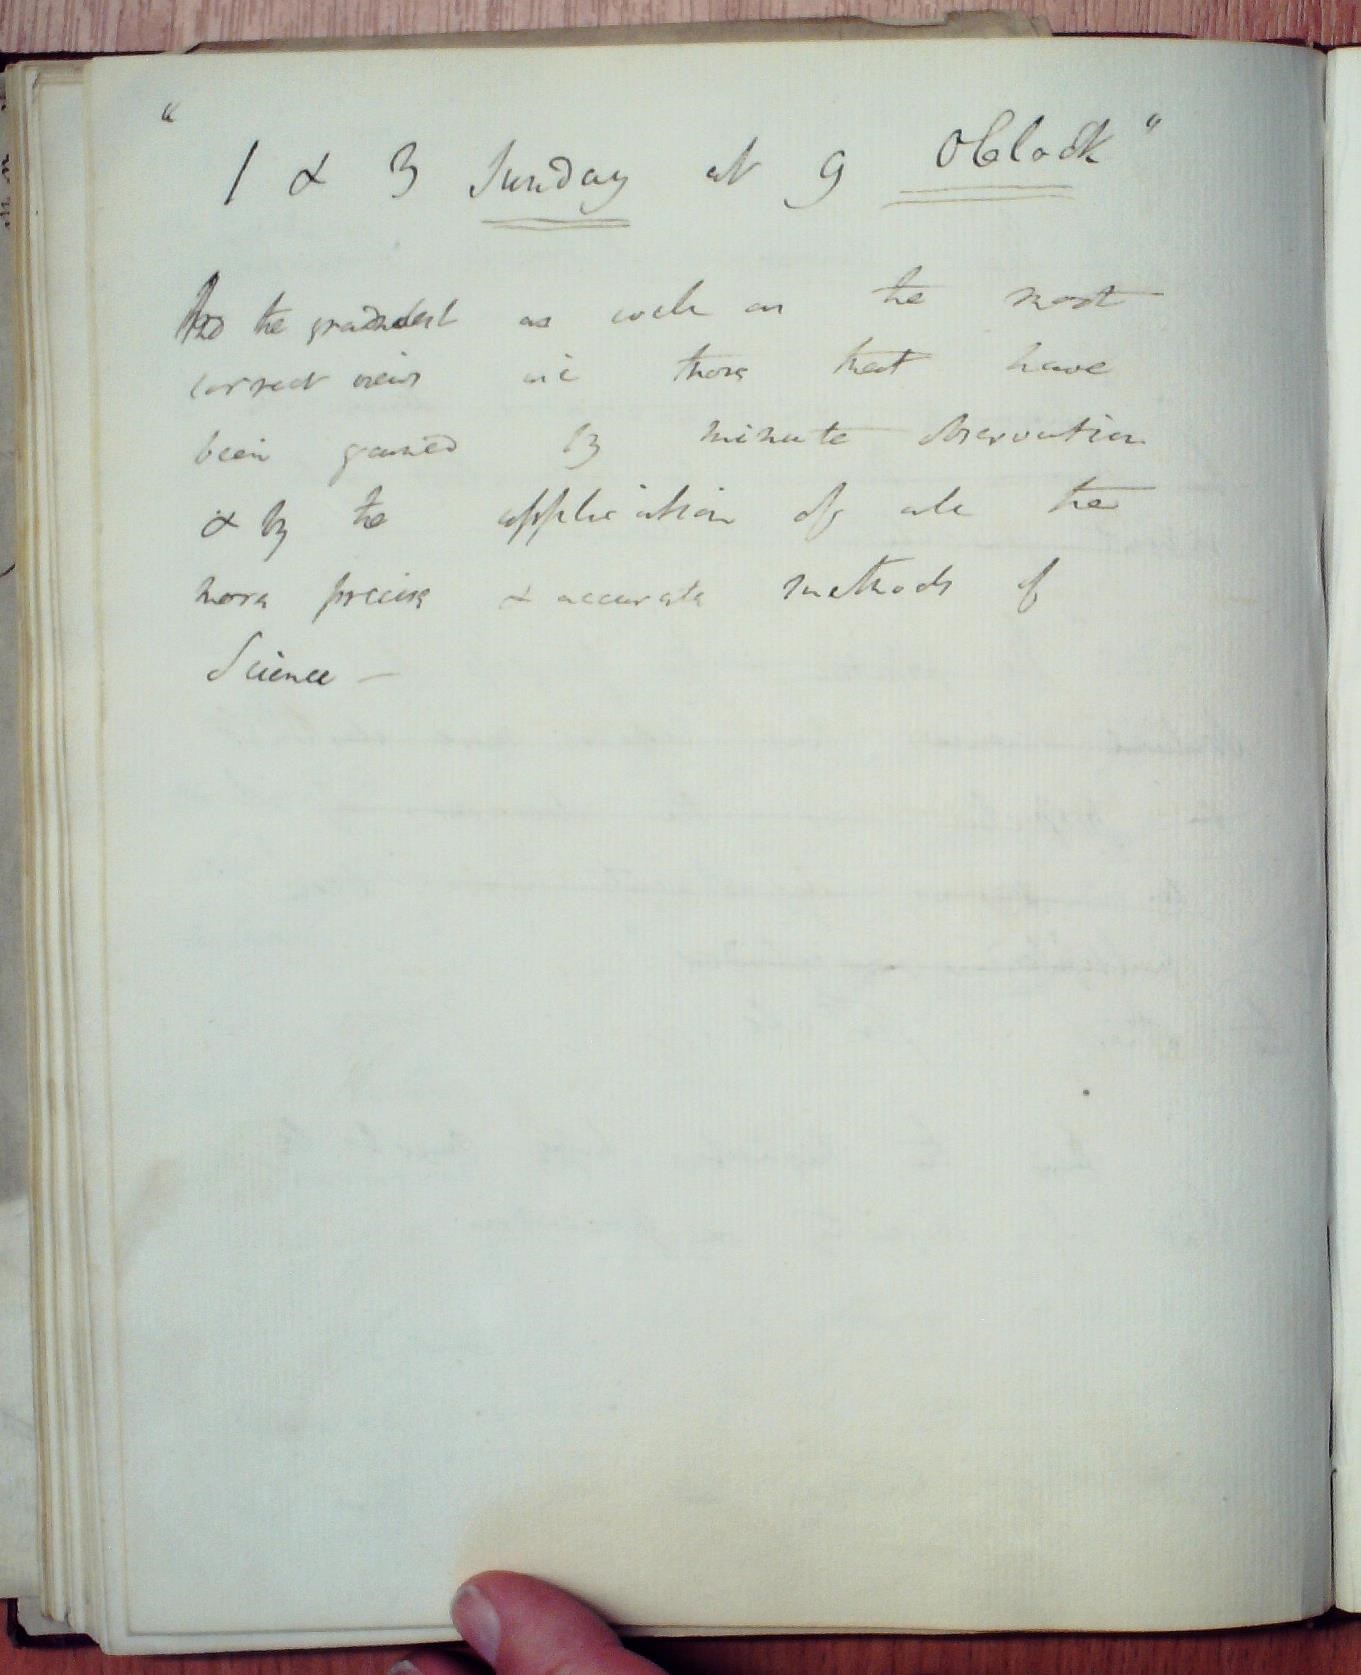 "1 & 3 Sunday at 9 OClock"
And the grandest as well as the most
correct views are those that have
been gained by minute observation
& by the application of all the
more precise & accurate methods of
Science —